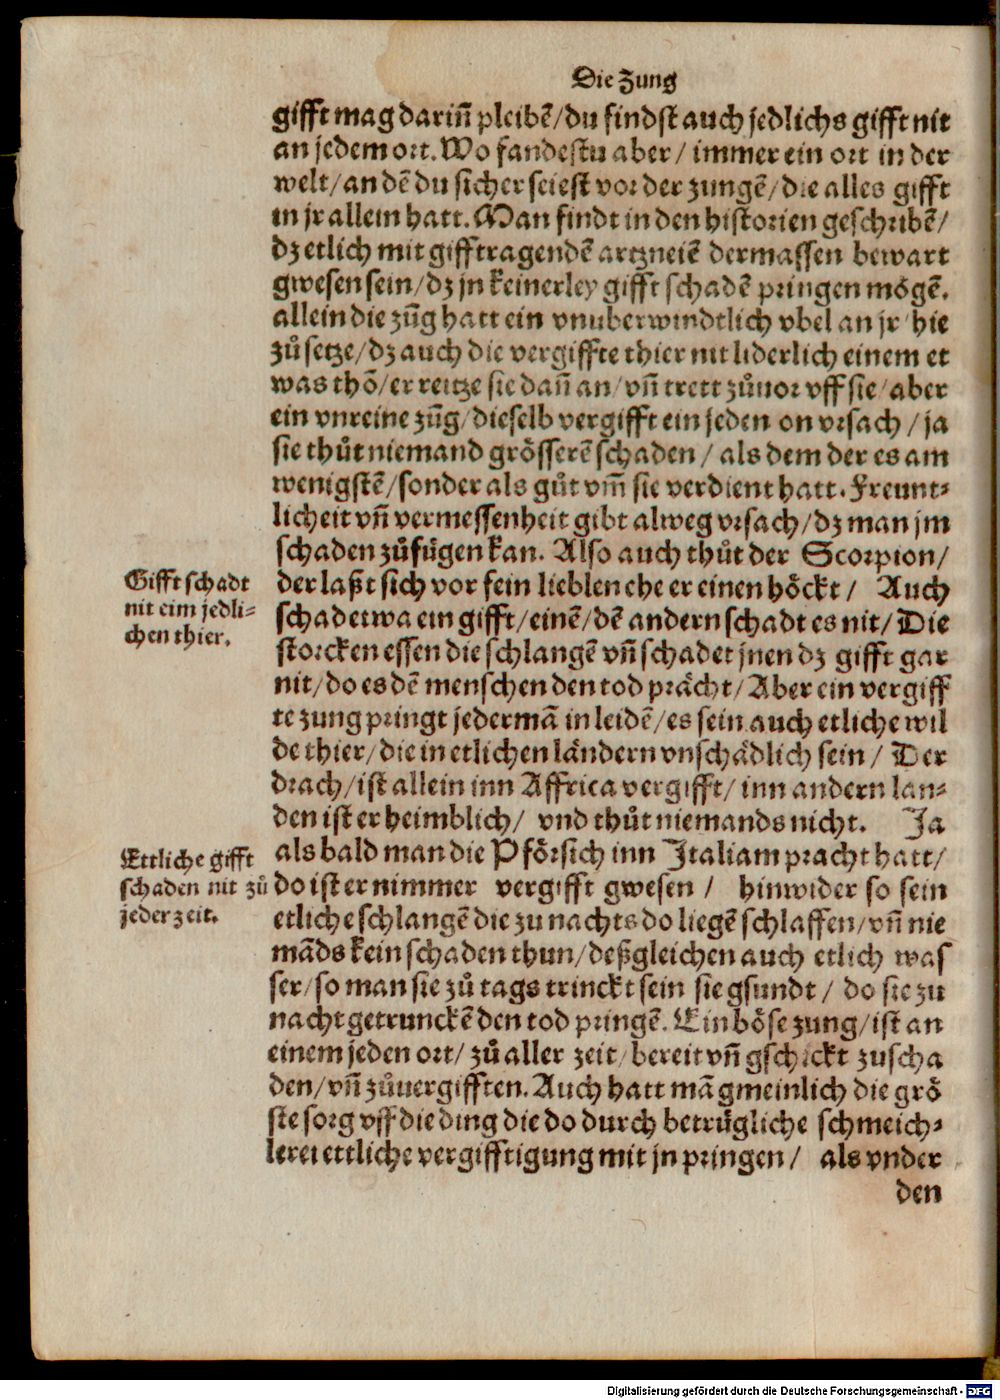 Die Zung
gifft mag dariñ pleibẽ/du findst auch jedlichs gifft nit
an jedem ort. Wo fandestu aber/ immer ein ort in der
welt/an dẽ du sicher seiest vor der zungẽ/die alles gifft
in jr allein hatt. Man findt in den historien geschribẽ/
dz etlich mit gifftragendẽ artzneiẽ dermassen bewart
gwesen sein/dz jn keinerley gifft schadẽ pringen mögẽ.
allein die zũg hatt ein vnuberwindtlich vbel an jr/hie
zů setze/dz auch die vergiffte thier nit liderlich einem et
was thõ/er reitze sie dañ an/vñ trett zůuor vff sie/aber
ein vnreine zũg/dieselb vergifft ein jeden on vrsach/ja
sie thůt niemand grösserẽ schaden/als dem der es am
wenigstẽ/sonder als gůt vm̃ sie verdient hatt. Freunt-
licheit vñ vermessenheit gibt alweg vrsach/dz man jm
schaden zůfůgen kan. Also auch thůt der Scorpion/
Gifft schadt
nit eim jedli-
chen thier.
der laßt sich vor fein lieblen ehe er einen höckt/ Auch
schad etwa ein gifft/einẽ/dẽ andern schadt es nit/Die
storcken essen die schlangẽ vñ schadet jnen dz gifft gar
nit/do es dẽ menschen den tod prächt/Aber ein vergiff
te zung pringt jedermã in leidẽ/es sein auch etliche wil
de thier/die in etlichen ländern vnschädlich sein/ Der
drach/ist allein inn Affrica vergifft/inn andern lan-
den ist er heimblich/ vnd thůt niemands nicht. Ja
Ettliche gifft
schaden nit zů
jeder zeit.
als bald man die Pförsich inn Italiam pracht hatt/
do ist er nimmer vergifft gwesen/ hinwider so sein
etliche schlangẽ die zu nachts do liegẽ schlaffen/vñ nie
mãds kein schaden thun/deßgleichen auch etlich was
ser/so man sie zů tags trinckt sein sie gsundt/ do sie zu
nacht getrunckẽ den tod pringẽ. Ein böse zung/ist an
einem jeden ort/zů aller zeit/bereit vñ gschickt zu scha
den/vñ zůuergifften. Auch hatt mã gmeinlich die grö
ste sorg vff die ding die do durch betrůgliche schmeich-
lerei ettliche vergifftigung mit jn pringen/ als vnder
den
Digitalisierung gefördert durch die Deutsche Forschungsgemeinschaft - DFG